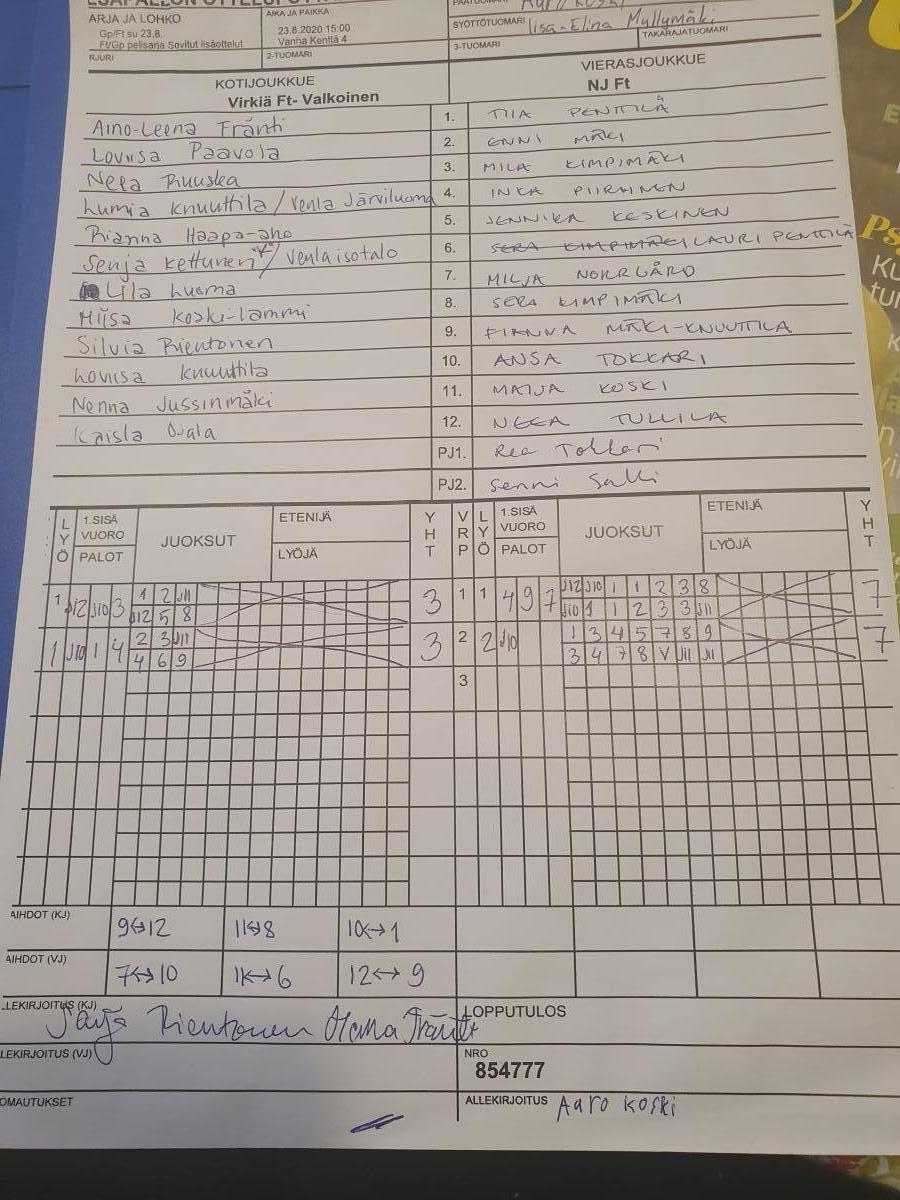 ARJA JA LOHKO
Gp/Ft su 23.8.
Ft/Gp pelisarja Sovitut lisäottelut
AIKA JA PAIKKA
23.8.2020 15:00
Vanha Kenttä 4
SYÖTTÖTUOMARI Iisa-Elina Myllymäki
RJURI
2-TUOMARI
3-TUOMARI
TAKARAJATUOMARI
KOTIJOUKKUE
Virkiä Ft- Valkoinen
VIERASJOUKKUE
NJ Ft
Aino-Leena Fränti 1. TIIA PENTTILÄ
Loviisa Paavola 2. ENNI MÄKI
Neea Ruuska 3. MILA KIMPIMÄKI
Lumia Knuuttila / Venla Järviluoma 4. INKA PIIRAINEN
Rianna Haapa-aho 5. JENNIKA KESKINEN
Senja Kettunen / Venla isotalo 6. SERA KIMPIMÄKI LAURI PENTTILÄ
Lila Luoma 7. MILJA NORRGÅRD
Miisa Koski-Lammi 8. SERA KIMPIMÄKI
Silvia Rientonen 9. FIANNA MÄKI-KNUUTTILA
Loviisa Knuuttila 10. ANSA TOKKARI
Nenna Jussinmäki 11. MAIJA KOSKI
Kaisla Ojala 12. NEEA TULLILA
PJ1. Rea Tokkari
PJ2. Senni Salli
LYÖ 1.SISÄ VUORO PALOT JUOKSUT ETENIJÄ LYÖJÄ YHT VRP LYÖ 1.SISÄ VUORO PALOT JUOKSUT ETENIJÄ LYÖJÄ YHT
1 J12 J10 3 1 2 J11 3 1 1 4 9 7 J12 J10 1 1 2 3 8 7
J12 5 8 J10 1 1 2 3 3 J11
1 J10 1 4 2 3 J11 3 2 2 J10 1 3 4 5 7 8 9 7
4 6 9 3 4 7 8 V J11 J11
3
AIHDOT (KJ) 9↔12 11↔8 10↔1
AIHDOT (VJ) 7↔10 11↔6 12↔9
LEKIRJOITUS (KJ)
Rientonen
LOPPUTULOS
LEKIRJOITUS (VJ)
NRO
854777
OMAUTUKSET
ALLEKIRJOITUS Aaro Koski